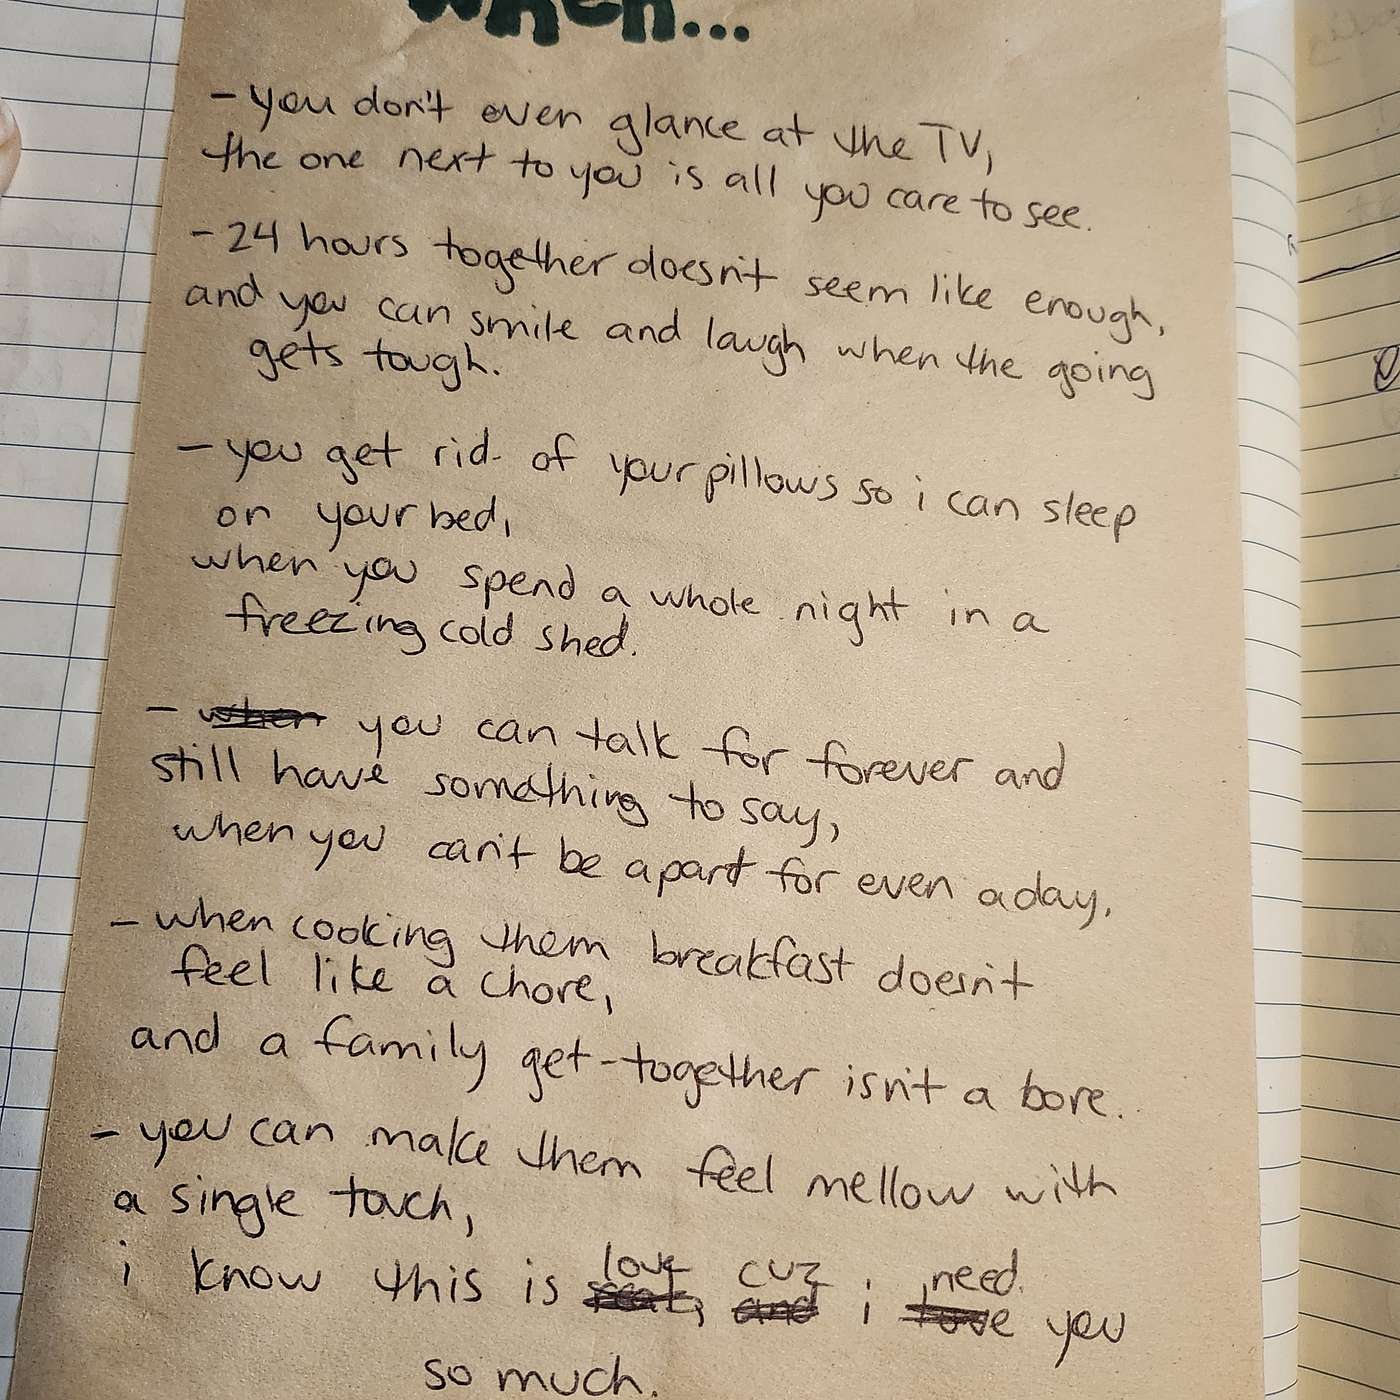 when...
- you don't even glance at the TV,
the one next to you is all you care to see.
- 24 hours together doesn't seem like enough,
and you can smile and laugh when the going
gets tough.
- you get rid of your pillows so i can sleep
on your bed,
when you spend a whole night in a
freezing cold shed.
- when you can talk for forever and
still have something to say,
when you can't be apart for even a day.
- when cooking them breakfast doesn't
feel like a chore,
and a family get-together isn't a bore.
- you can make them feel mellow with
a single touch,
love cuz need.
i know this is real, and i love you
so much.